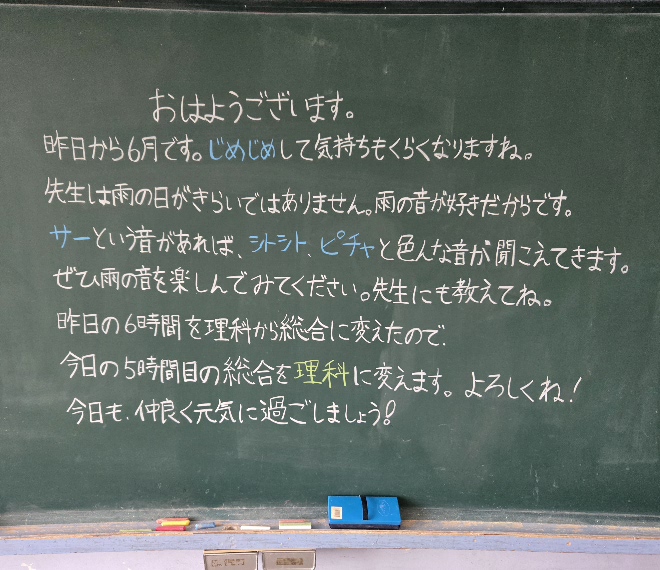 おはようございます。
昨日から6月です。じめじめして気持ちもくらくなりますね。
先生は雨の日がきらいではありません。雨の音が好きだからです。
サーという音があれば、シトシト、ピチャと色んな音が聞こえてきます。
ぜひ雨の音を楽しんでみてください。先生にも教えてね。
昨日の6時間を理科から総合に変えたので、
今日の5時間目の総合を理科に変えます。よろしくね!
今日も、仲良く元気に過ごしましょう!